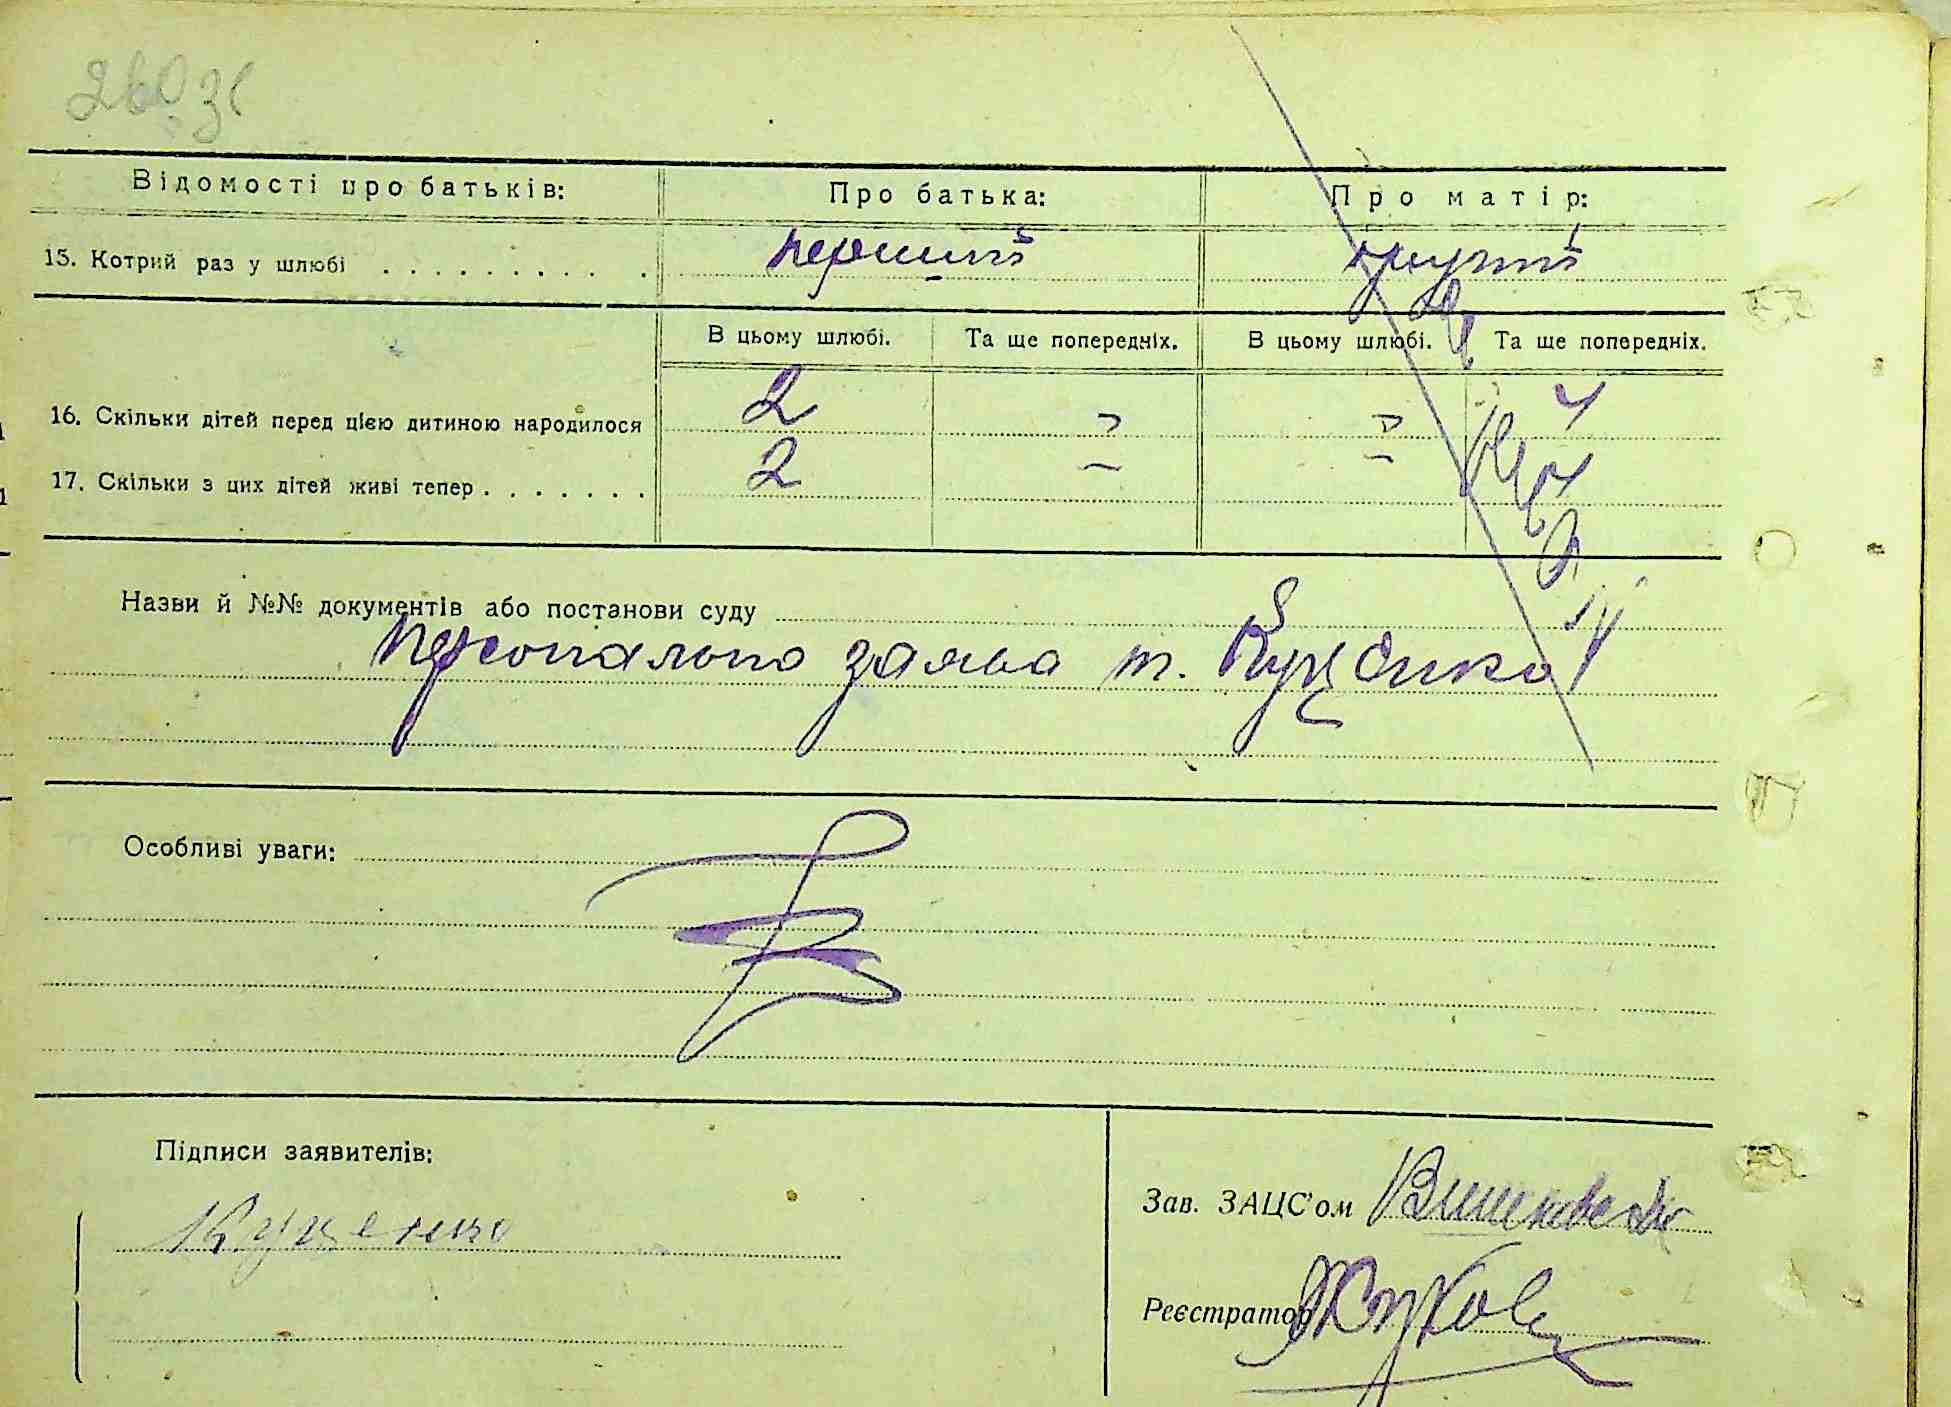 Відомості про батьків: Про батька: Про матір:
15. Котрий раз у шлюбі . . . . . . . . . . перший другий
В цьому шлюбі. Та ще попередніх. В цьому шлюбі. Та ще попередніх.
16. Скільки дітей перед цією дитиною народилося 2
17. Скільки з цих дітей живі тепер . . . . . . . 2 — —
Назви й №№ документів або постанови суду
персонально заява т. Куценко
Особливі уваги:
Підписи заявителів:
Куценко
Зав. ЗАЦС'ом
Реєстратор